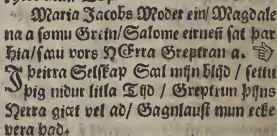 Maria Jacobs Moder ein/ Magdale
na a sømu Grein/ Salome eirnen sat þar
hia/ sau vors HErra Greptran a. ☞
J þeirra Selskap Sæl mijn blijd / settu
þig nidur litla Tijd / Greptrun þijns
Herra giæt vel ad/ Gagnlaust mun ecke
vera þad.